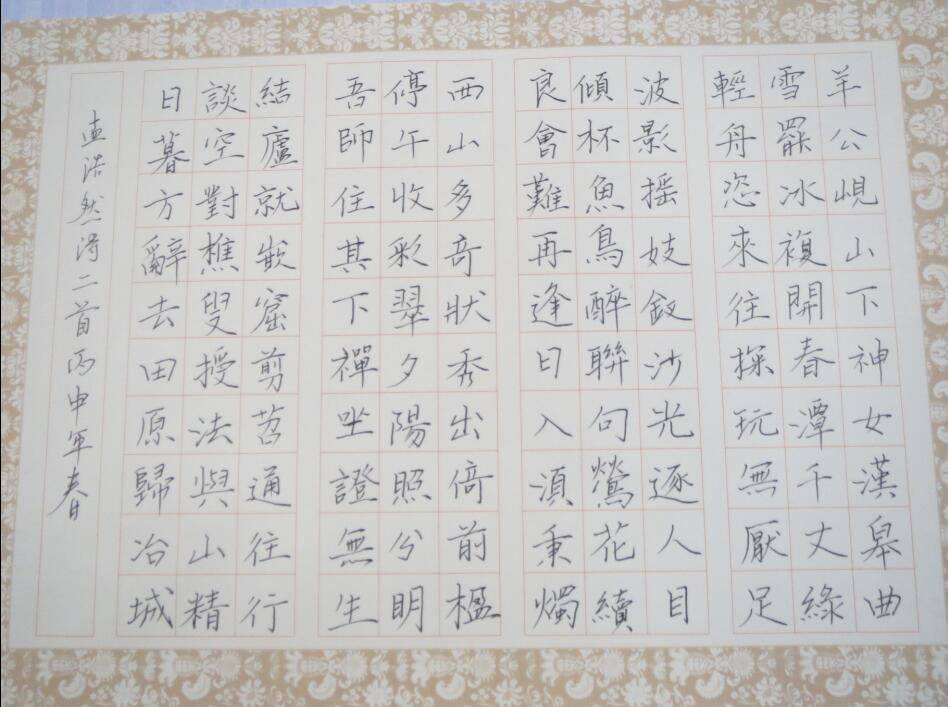 羊公峴山下神女漢皋曲
雪罷冰複開春潭千丈綠
輕舟恣來往探玩無厭足
波影摇妓釵沙光逐人目
傾杯魚鳥醉聯句鶯花續
良會難再逢日入須秉燭
西山多奇狀秀出倚前楹
停午收彩翠夕陽照分明
吾師住其下禪坐證無生
結廬就嵌窟剪苕通往行
談空對樵叟授法與山精
日暮方辭去田原歸冶城
孟浩然詩二首丙申年春